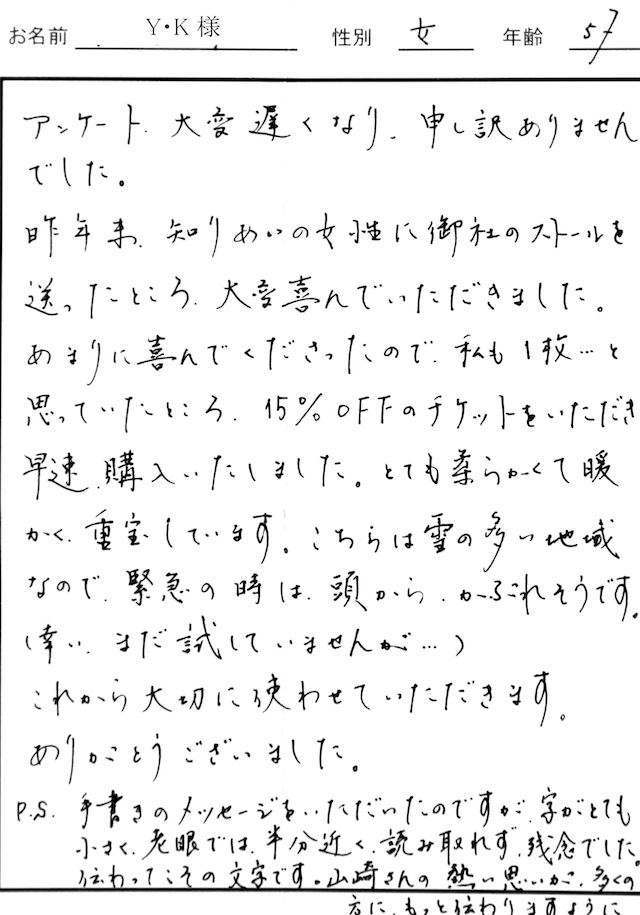 お名前 Y・K様 性別 女 年齢 57
アンケート、大変遅くなり、申し訳ありません
でした。
昨年末、知りあいの女性に御社のストールを
送ったところ、大変喜んでいただきました。
あまりに喜んでくださったので、私も1枚…と
思っていたところ、15%OFFのチケットをいただき
早速、購入いたしました。とても柔らかくて暖
かく、重宝しています。こちらは雪の多い地域
なので、緊急の時は、頭から、かぶれそうです。
(幸い、まだ試していませんが…)
これから大切に使わせていただきます。
ありがとうございました。
P.S. 手書きのメッセージをいただいたのですが、字がとても
小さく、老眼では、半分近く、読み取れず、残念でした。
伝わってこその文字です。山崎さんの熱い思いが、多くの
方に、もっと伝わりますように